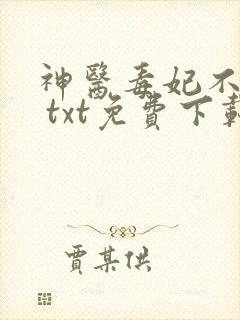 神醫毒妃不
txt免費下載
賈某供